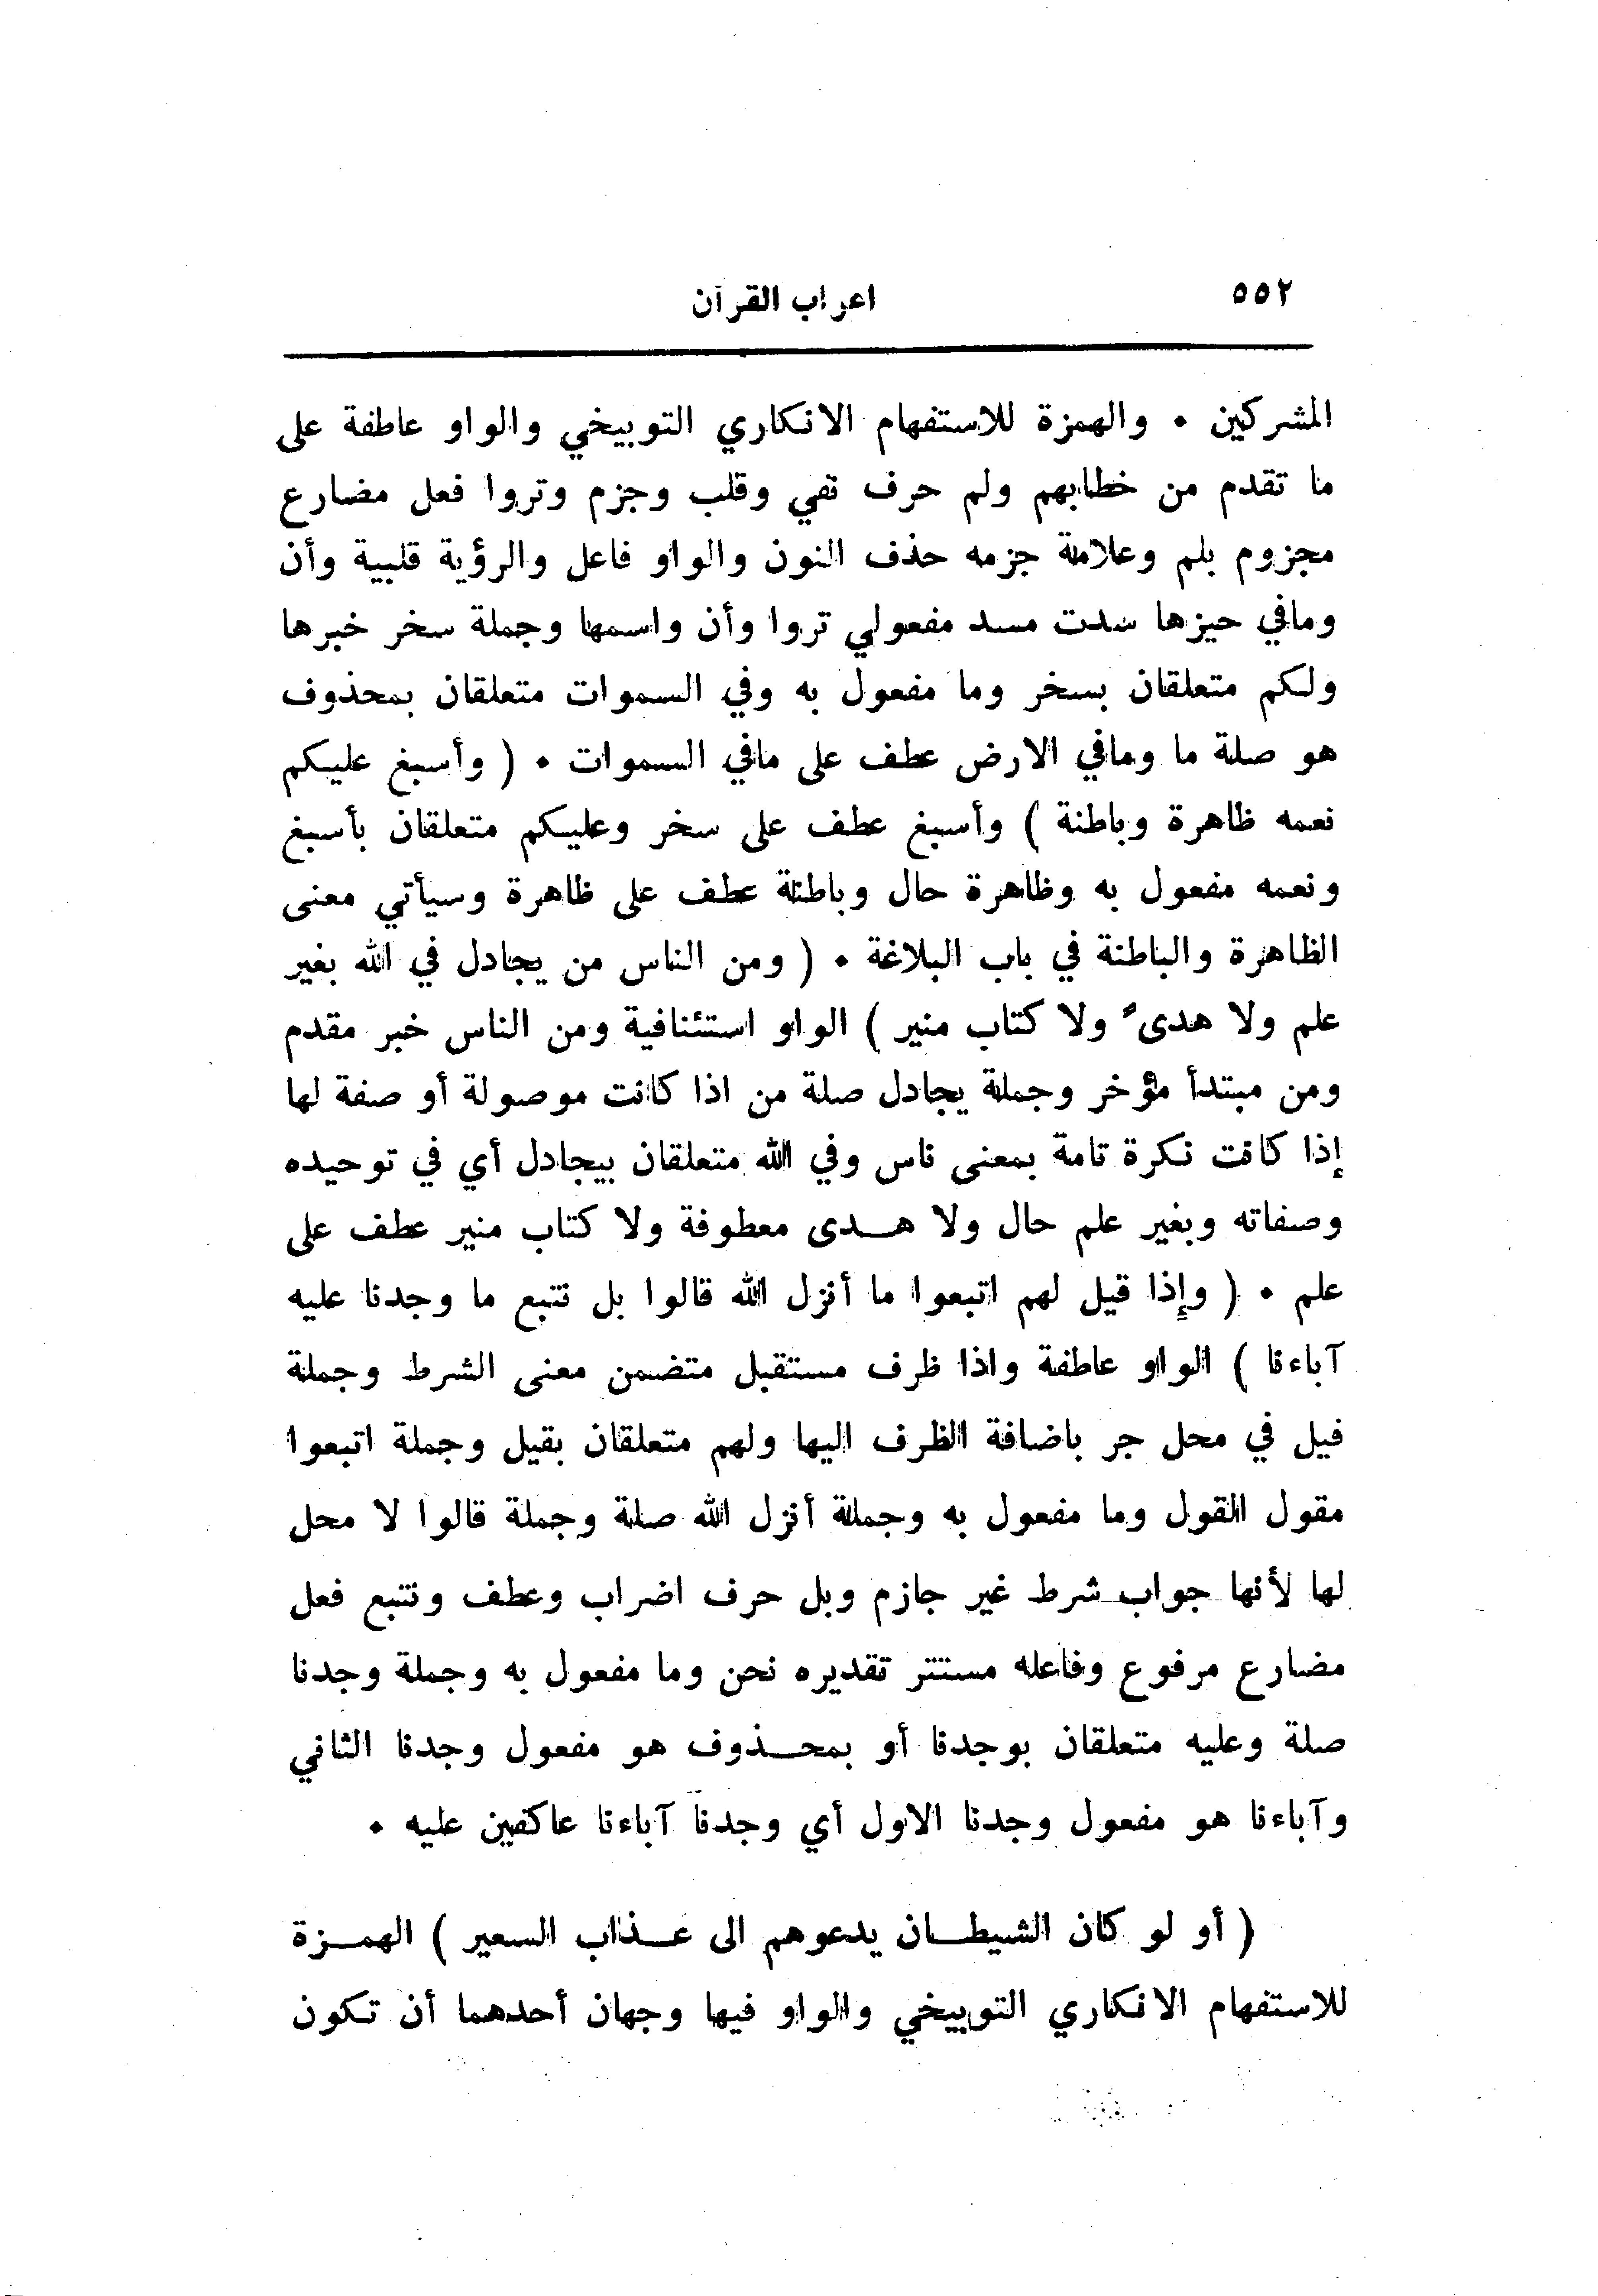 ٥٥٢ اعراب القرآن
المشركين . والهمزة للاستفهام الانكاري التوبيخي والواو عاطفة على
ما تقدم من خطابهم ولم حرف نفي وقلب وجزم وتروا فعل مضارع
مجزوم بلم وعلامة جزمه حذف النون والواو فاعل والرؤية قلبية وأن
ومافي حيزها سدت مسد مفعولي تروا وأن واسمها وجملة سخر خبرها
ولكم متعلقان بسخر وما مفعول به وفي السموات متعلقان بمحذوف
هو صلة ما ومافي الارض عطف على مافي السموات . ( وأسبغ عليكم
نعمه ظاهرة وباطنة ) وأسبغ عطف على سخر وعليكم متعلقان بأسبغ
ونعمه مفعول به وظاهرة حال وباطنة عطف على ظاهرة وسيأتي معنى
الظاهرة والباطنة في باب البلاغة . ( ومن الناس من يجادل في الله بغير
علم ولا هدىً ولا كتاب منير ) الواو استئنافية ومن الناس خبر مقدم
ومن مبتدأ مؤخر وجملة يجادل صلة من اذا كانت موصولة أو صفة لها
إذا كانت نكرة تامة بمعنى ناس وفي الله متعلقان بيجادل أي في توحيده
وصفاته وبغير علم حال ولا هـدى معطوفة ولا كتاب منير عطف على
علم . ( وإذا قيل لهم اتبعوا ما أنزل الله قالوا بل نتبع ما وجدنا عليه
آباءنا ) الواو عاطفة واذا ظرف مستقبل متضمن معنى الشرط وجملة
فيل في محل جر باضافة الظرف اليها ولهم متعلقان بقيل وجملة اتبعوا
مقول القول وما مفعول به وجملة أنزل الله صلة وجملة قالوا لا محل
لها لأنها جواب شرط غير جازم وبل حرف اضراب وعطف ونتبع فعل
مضارع مرفوع وفاعله مستتر تقديره نحن وما مفعول به وجملة وجدنا
صلة وعليه متعلقان بوجدنا أو بمحـذوف هو مفعول وجدنا الثاني
وآباءنا هو مفعول وجدنا الاول أي وجدنا آباءنا عاكفين عليه .
( أو لو كان الشيطـان يدعوهم الى عـذاب السعير ) الهمـزة
للاستفهام الانكاري التوبيخي والواو فيها وجهان أحدهما أن تكون